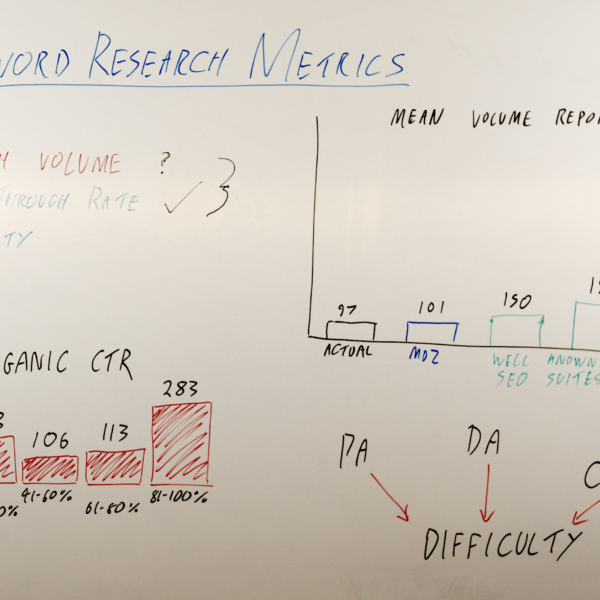 WORD RESEARCH METRICS
H VOLUME ?
THROUGH RATE ✓
TY
MEAN VOLUME REPO
97
101
150
ACTUAL
MOZ
WELL
SEO
KNOWN
SUITES
GANIC CTR
3
106
113
283
0%
41-60%
61-80%
81-100%
PA
DA
DIFFICULTY